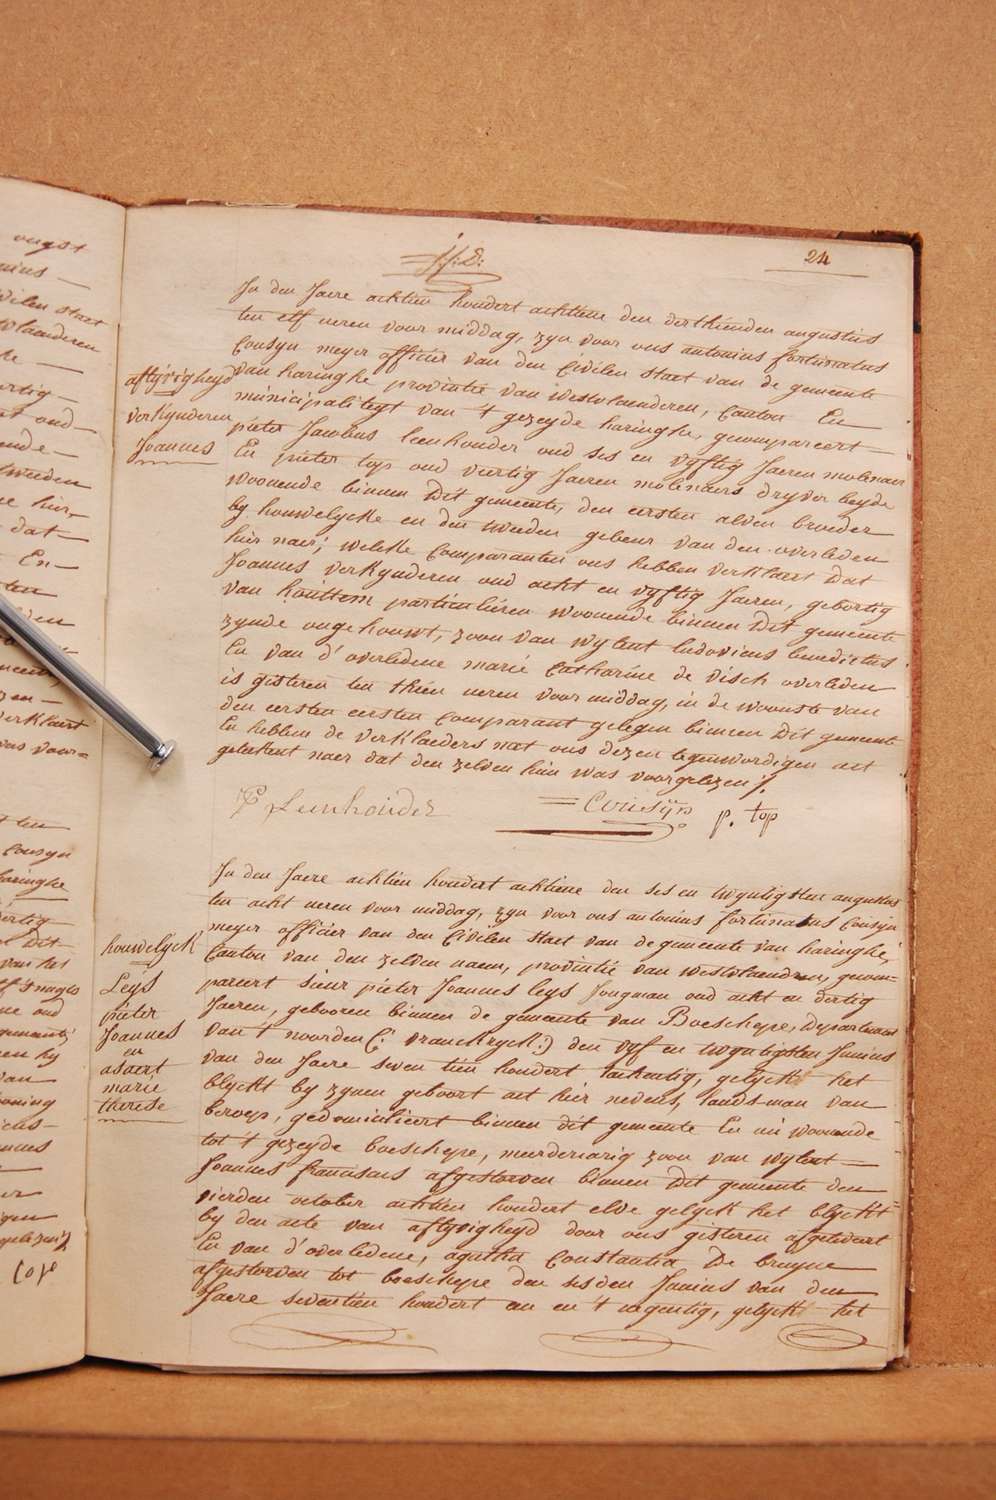 24
In den Jaere achtien hondert achtiene den derthienden augustus
ten elf ueren voor middag, zyn voor ons antonius fortunatus
Cousyn meyer officier van den Civilen staet van de gemeente
van haringhe provintie van westvlaenderen, Canton En
municipaliteyt van 't gezeyde haringhe, gecompareert
pieter Jacobus leenhouder oud ses en vyftig Jaeren molenaer
En pieter top oud veertig Jaeren molenaers dryver beyde
woonende binnen dit gemeente, den eersten alven broeder
by houwelycke en den tweeden gebeur van den overleden
hier naer; welcke Comparanten ons hebben verklaert dat
Joannes verkynderen oud acht en vyftig Jaeren, gebortig
van houttem particulieren woonende binnen dit gemeente
zynde ongehouwt, zoon van wylent ludovicus benedictus
En van d'overledene marie Catharine de visch overleden
is gisteren ten thien ueren voor middag, in de woonste van
den eersten eersten Comparant gelegen binnen dit gemeente
En hebben de verklaeders met ons dezen tegenwordigen act
geteekent naer dat den zelden hun was voorgelezen
aflyvigheyd
verkynderen
Joannes
P Leenhouder
Cousyn
p. top
In den Jaere achtien hondert achtiene den ses en twyntigsten augustus
ten acht ueren voor middag, zyn voor ons antonius fortunatus Cousyn
meyer officier van den Civilen staet van de gemeente van haringhe,
Canton van den zelden naem, provintie van westvlaendren, gecom=
pareert sieur pieter Joannes leys Jongman oud acht en dertig
Jaeren, gebooren binnen de gemeente van Boeschepe, departement
van 't noorden (: vranckryck:) den vyf en twyntigsten Junius
van den Jaere seventien hondert tachentig, gelyck het
blyckt by zynen geboort act hier nevens, landsman van
beroep, gedomicilieert binnen dit gemeente En nu woonende
tot 't gezeyde boeschepe, meerderiarig zoon van wylent
Joannes franciscus afgestorven binnen dit gemeente den
vierden october achtien hondert elve gelyck het blyckt
by den acte van aflyvigheyd door ons gisteren afgelevert
En van d'overledene, agatha Constantia De bruyne
afgestorven tot boeschepe den sesden Junius van den
Jaere seventien hondert een en 't negentig, gelyck het
houwelyck
Leys
pieter
Joannes
en
asaert
marie
therese